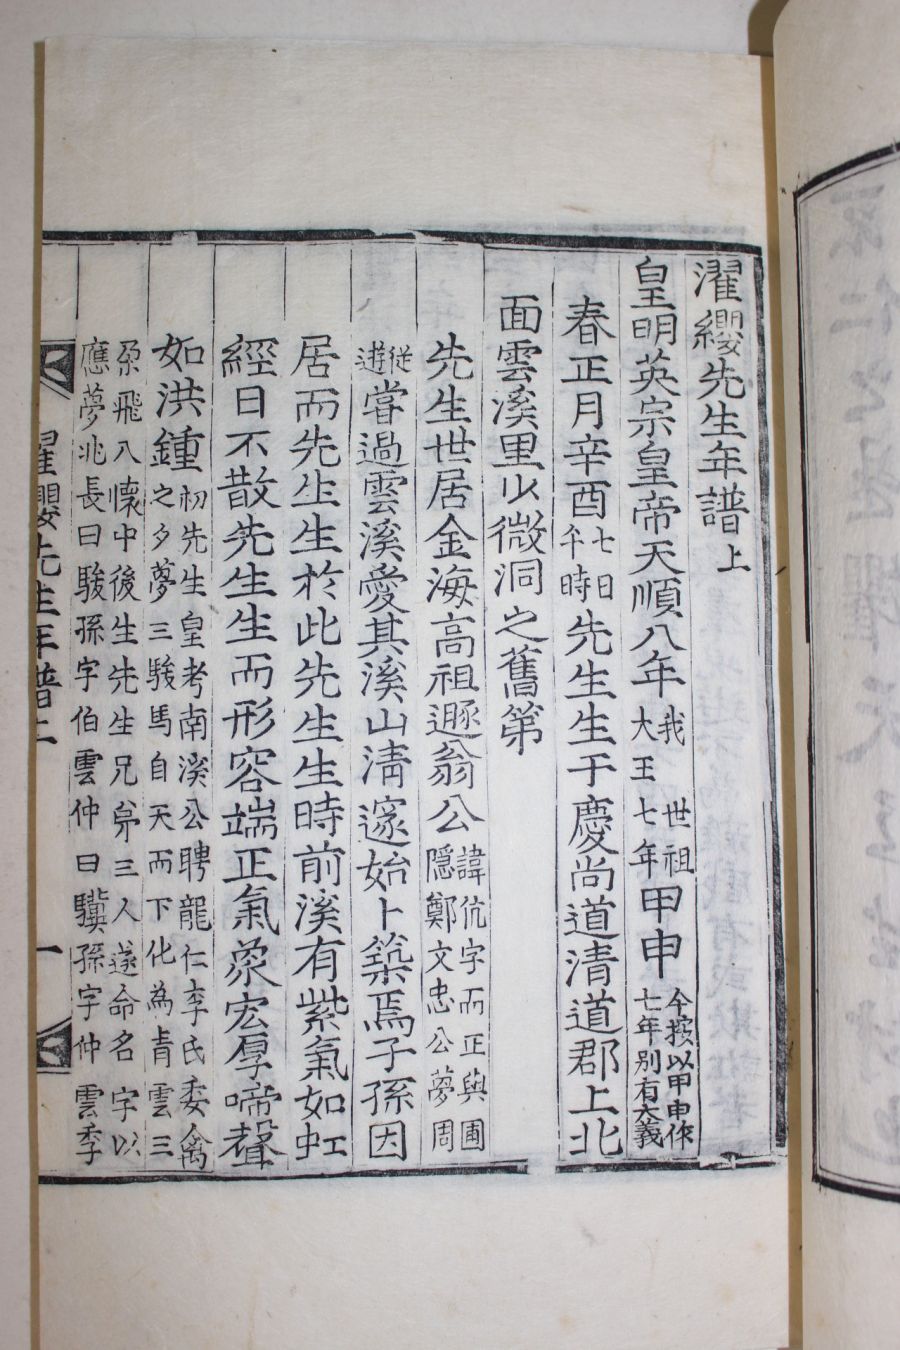 濯纓先生年譜上
皇明英宗皇帝天順八年我 世祖大王七年甲申今按以甲申作七年別有大義
春正月辛酉七日午時先生生于慶尚道清道郡上北
面雲溪里以微洞之舊第
先生世居金海高祖遯翁公諱伉字而正與圃隱鄭文忠公夢周
從遊嘗過雲溪愛其溪山清邃始卜築焉子孫因
居而先生生於此先生生時前溪有紫氣如虹
經日不散先生生而形容端正氣象宏厚啼聲
如洪鍾初先生皇考南溪公聘龍仁李氏委禽之夕夢三駿馬自天而下化為青雲三
朶飛入懷中後生先生兄弟三人遂命名字以
應夢兆長曰駿孫字伯雲仲曰驥孫字仲雲季
濯纓先生年譜上
一